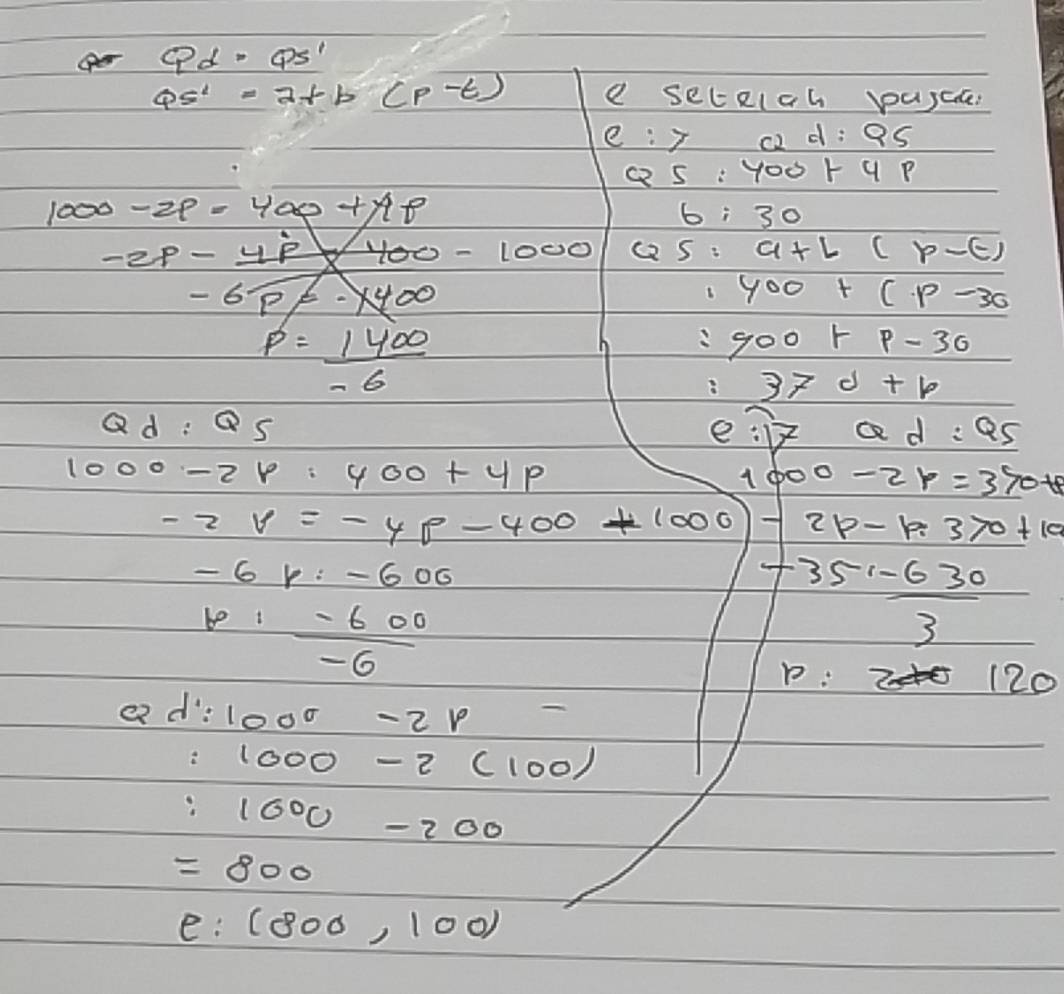 Qd = Qs'
Qs' = a+b (P-t)
1000 -2P = 400 + 4P
-2P - 4P = 400 - 1000
-6P = -1400
P = 1400
-6
Qd : QS
1000 -2P : 400 + 4P
-2P = -4P - 400 + 1000
-6P : -600
P : -600
-6
Qd : 1000 -2P -
: 1000 -2 (100)
: 1000 -200
= 800
e : (800, 100)
e setelah pajak:
e : > Qd : QS
QS : 400 + 4P
b : 30
QS : a+b (P-t)
: 400 + (P-30
: 900 + P-30
: 370 + P
e : > Qd : QS
1000 -2P = 370+P
-2P-P: 370+10
-35 : -630
3
P : 120